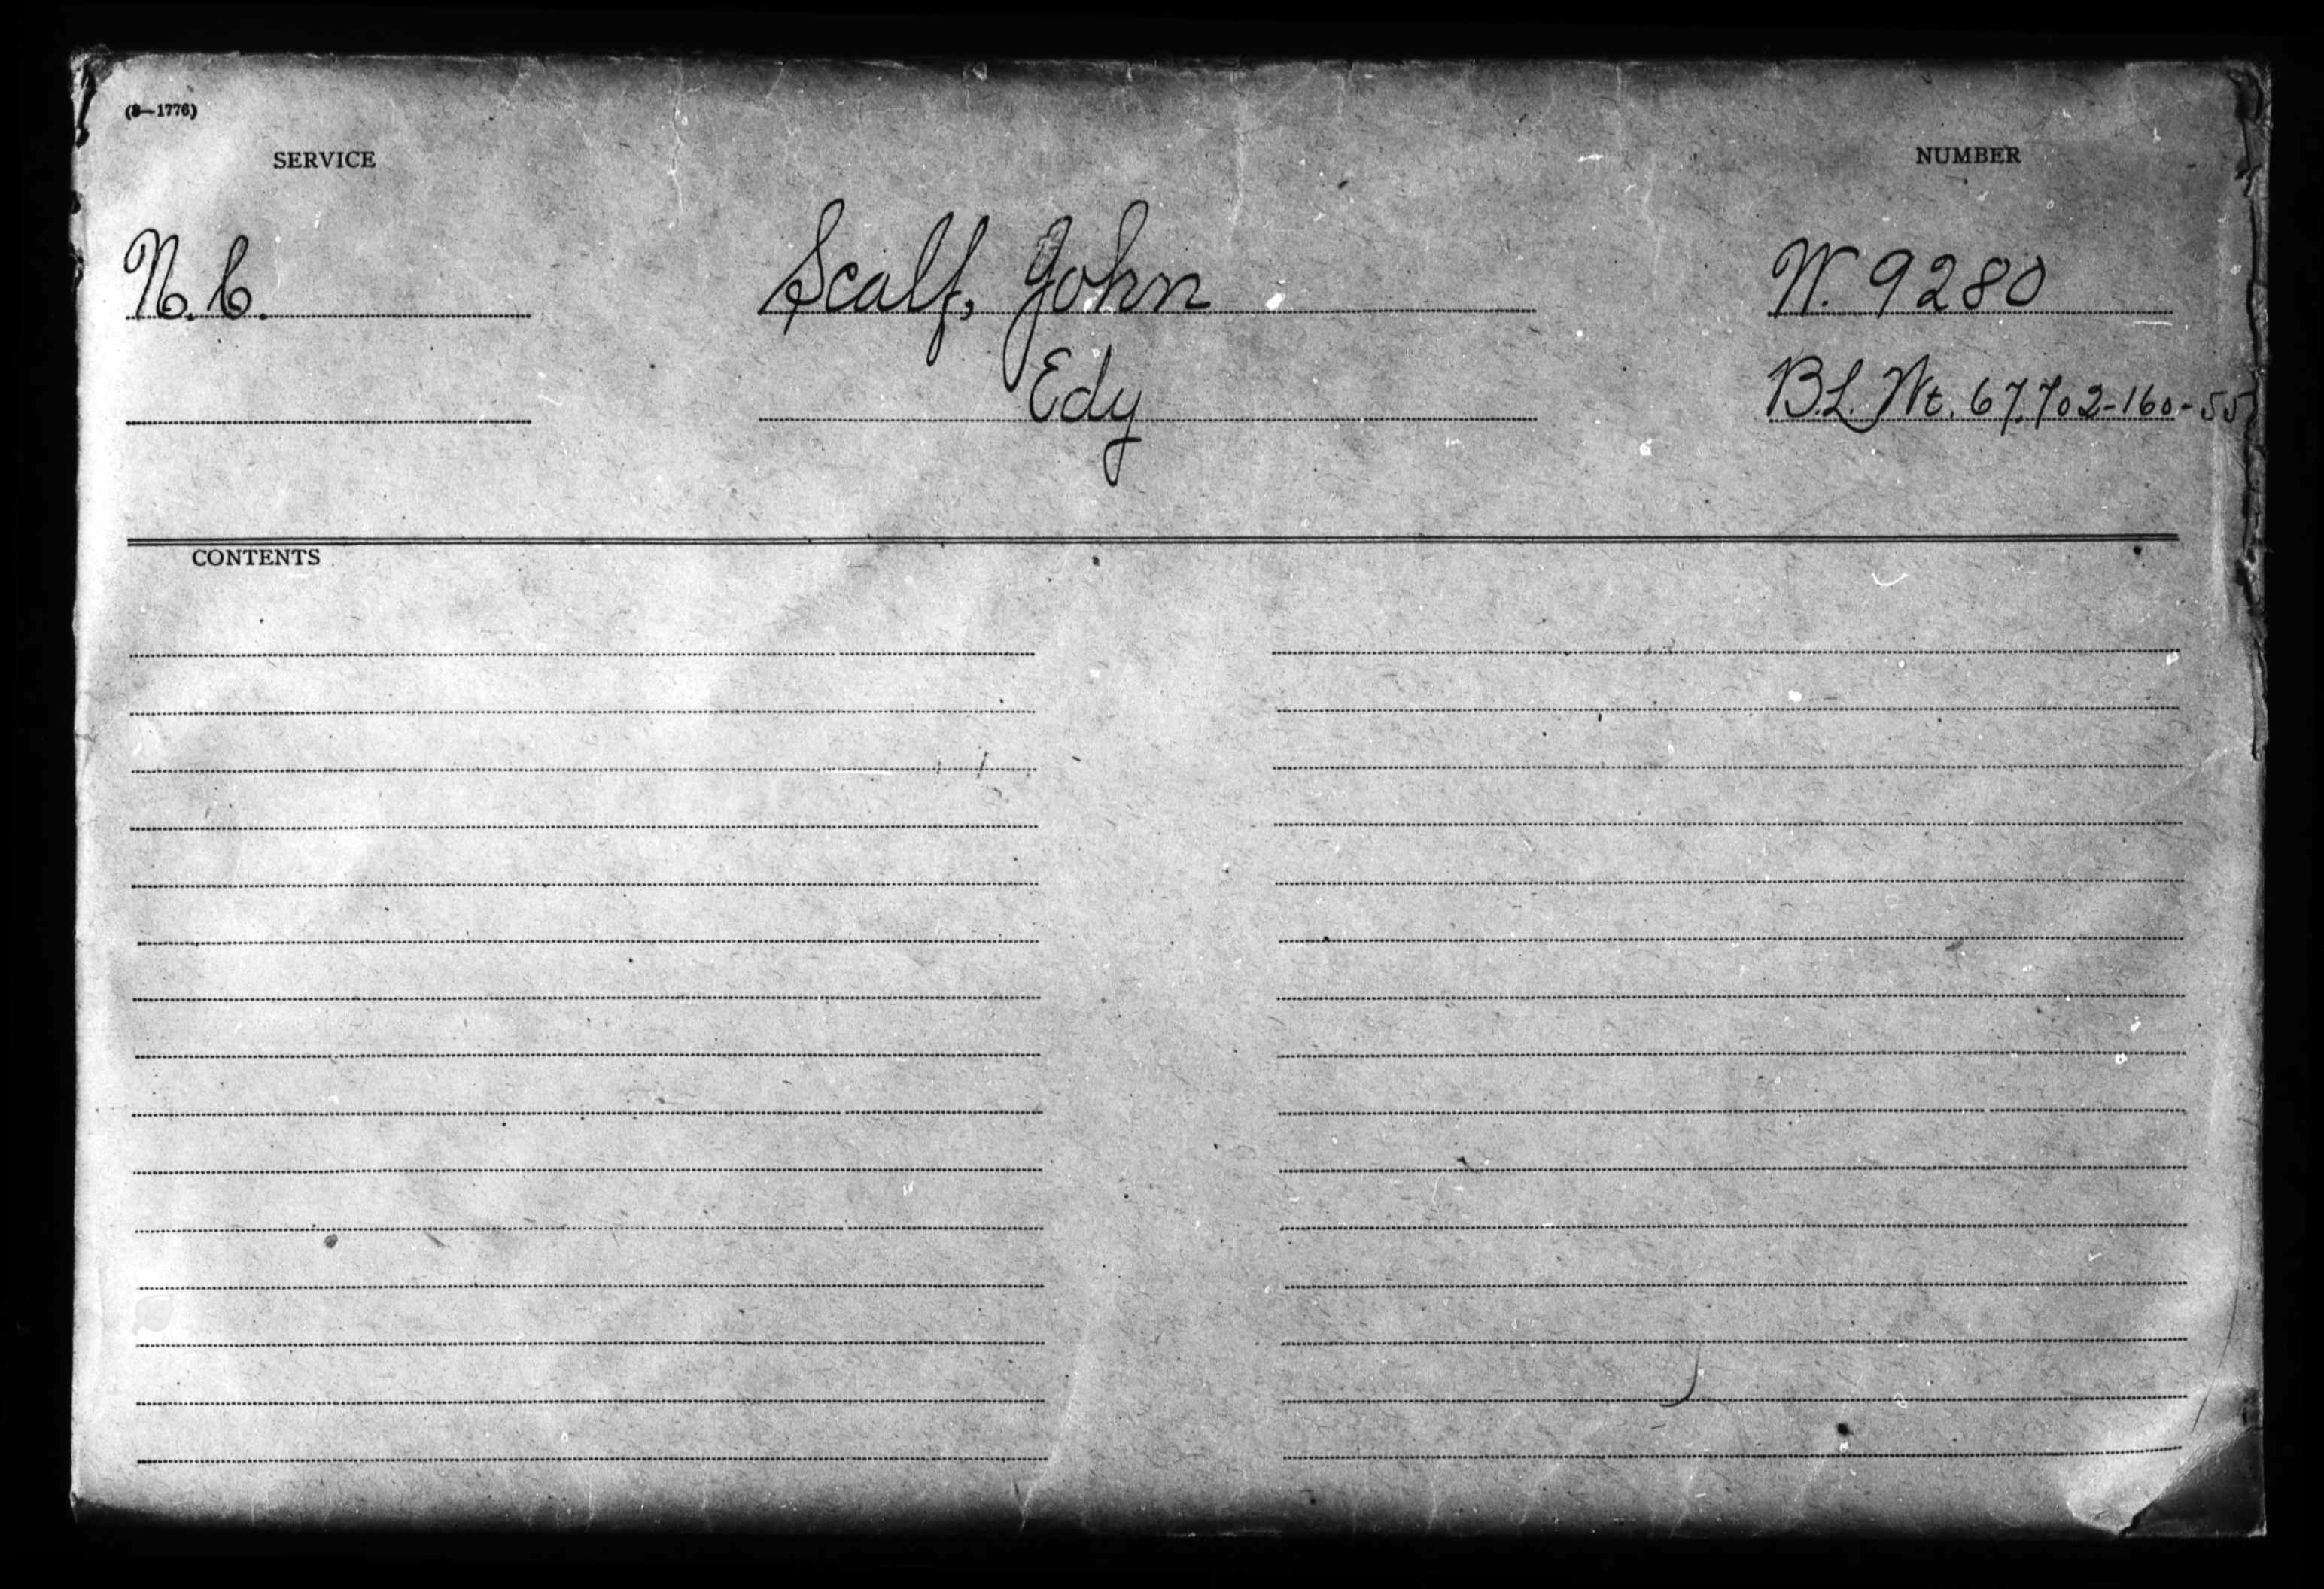 (3—1776)
SERVICE
NUMBER
N.C. Scalf, John W. 9280
Edy B.L. Wt. 67.702-160-55
CONTENTS